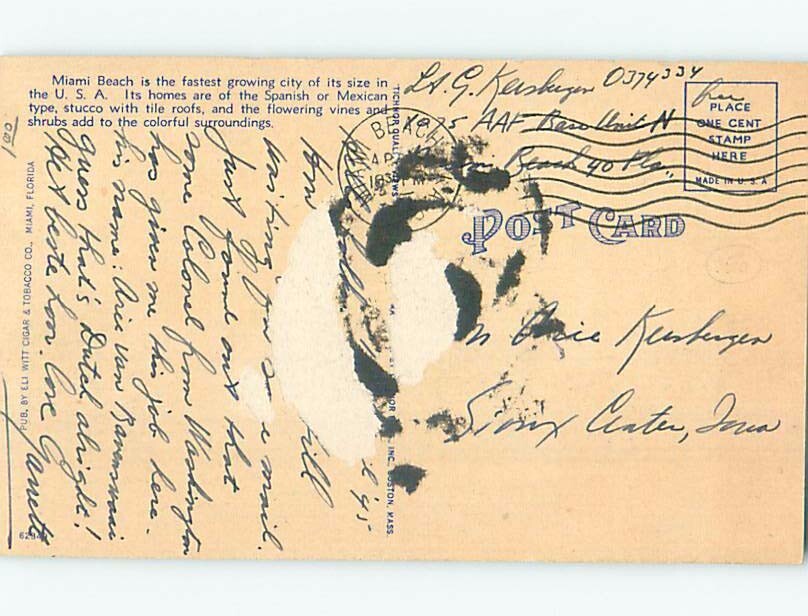 Miami Beach is the fastest growing city of its size in
the U. S. A. Its homes are of the Spanish or Mexican
type, stucco with tile roofs, and the flowering vines and
shrubs add to the colorful surroundings.
Lt. G. Kersbergen 0374334
AAF Base Unit
Beach 40 Fla.,
free
PLACE
ONE CENT
STAMP
HERE
MADE IN U. S. A.
MIAMI BEACH
POST CARD
Arie Kersbergen
Sioux Center, Iowa
'45
How
still
waiting for some mail.
Just found out that
some Colonel from Washington
has given me this job here.
his name: Arie van
guess that's Dutch alright!
de beste hoor. Love Garrett
PUB. BY ELI WITT CIGAR & TOBACCO CO., MIAMI, FLORIDA
TICHNOR QUALITY VIEWS
INC., BOSTON, MASS.